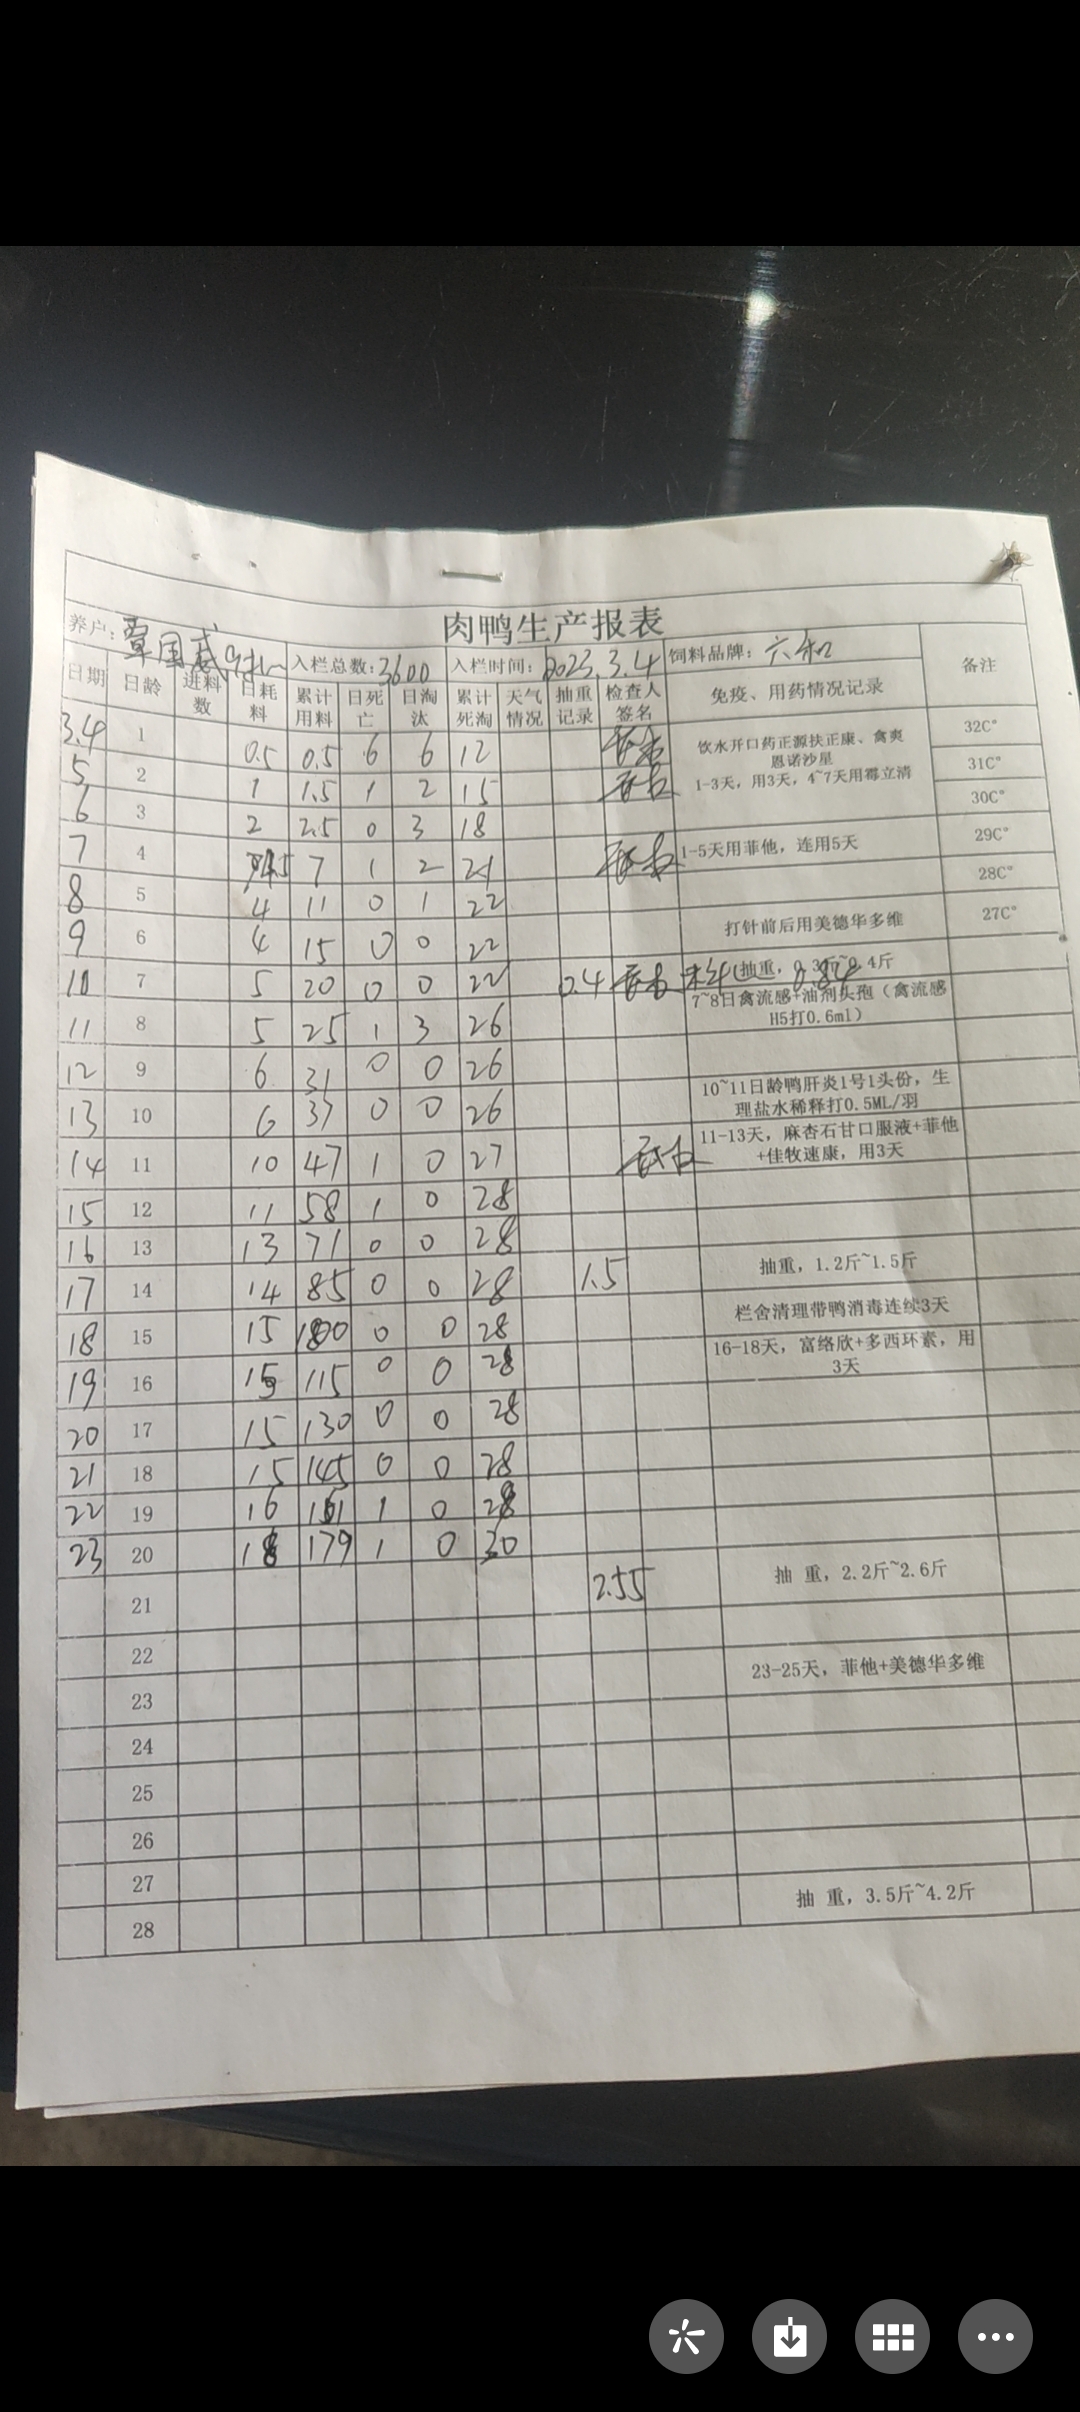 肉鸭生产报表
养户: 覃国威 入栏总数: 3600 入栏时间: 2023.3.4 饲料品牌: 六和 备注
日期 日龄 进料数 日耗料 累计用料 日死亡 日淘汰 累计死淘 天气情况 抽重记录 检查人签名 免疫、用药情况记录
3.4 1 0.5 0.5 6 6 12 饮水开口药正源扶正康、禽爽 32C°
恩诺沙星
5 2 1 1.5 1 2 15 1-3天，用3天，4~7天用霉立清 31C°
6 3 2 2.5 0 3 18 30C°
7 4 7 1 2 21 1-5天用菲他，连用5天 29C°
8 5 4 11 0 1 22 28C°
9 6 4 15 0 0 22 打针前后用美德华多维 27C°
10 7 5 20 0 0 22 0.4 抽重，0.3斤~0.4斤
11 8 5 25 1 3 26 7~8日禽流感+油剂头孢（禽流感
H5打0.6ml）
12 9 6 31 0 0 26
13 10 6 37 0 0 26 10~11日龄鸭肝炎1号1头份，生
理盐水稀释打0.5ML/羽
14 11 10 47 1 0 27 11-13天，麻杏石甘口服液+菲他
+佳牧速康，用3天
15 12 11 58 1 0 28
16 13 13 71 0 0 28
17 14 14 85 0 0 28 1.5 抽重，1.2斤~1.5斤
18 15 15 100 0 0 28 栏舍清理带鸭消毒连续3天
19 16 15 115 0 0 28 16-18天，富络欣+多西环素，用
3天
20 17 15 130 0 0 28
21 18 15 145 0 0 28
22 19 16 161 1 0 28
23 20 18 179 1 0 30
21 2.55 抽 重，2.2斤~2.6斤
22
23 23-25天，菲他+美德华多维
24
25
26
27
28 抽 重，3.5斤~4.2斤